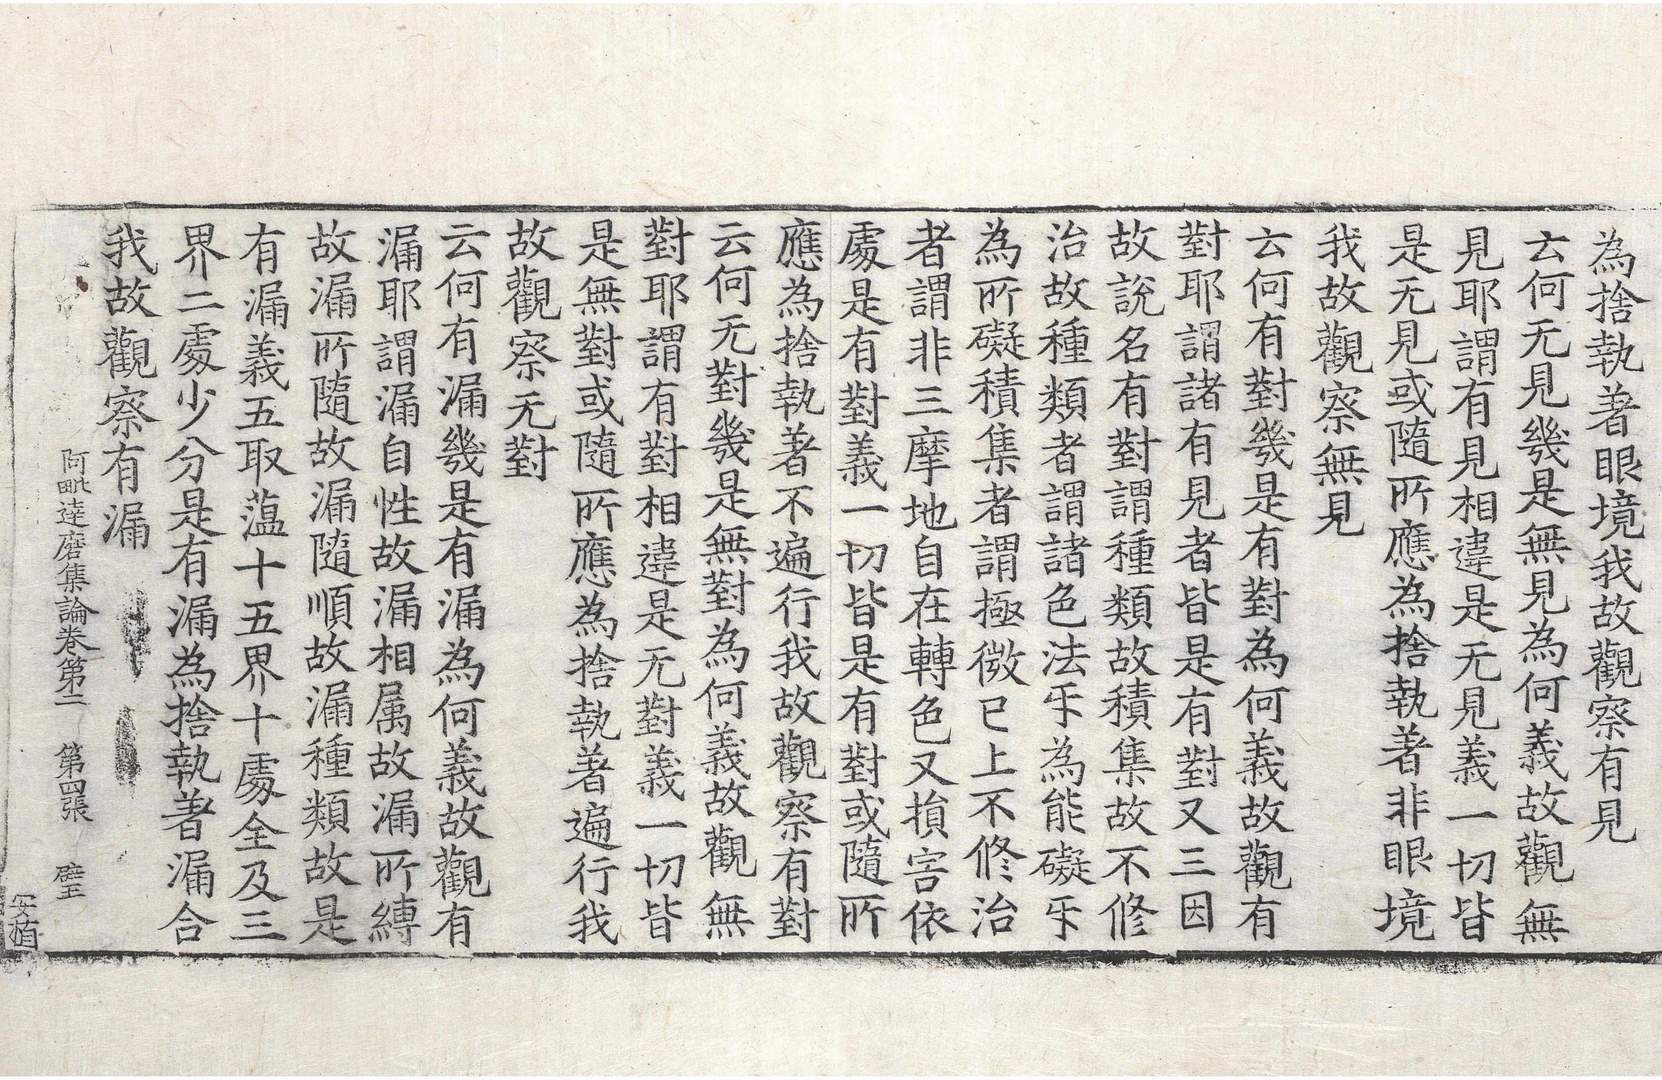 為捨執著眼境我故觀察有見
云何无見幾是無見為何義故觀無
見耶謂有見相違是无見義一切皆
是无見或隨所應為捨執著非眼境
我故觀察無見
云何有對幾是有對為何義故觀有
對耶謂諸有見者皆是有對又三因
故說名有對謂種類故積集故不修
治故種類者謂諸色法㸦為能礙㸦
為所礙積集者謂極微已上不修治
者謂非三摩地自在轉色又損害依
處是有對義一切皆是有對或隨所
應為捨執著不遍行我故觀察有對
云何无對幾是無對為何義故觀無
對耶謂有對相違是无對義一切皆
是無對或隨所應為捨執著遍行我
故觀察无對
云何有漏幾是有漏為何義故觀有
漏耶謂漏自性故漏相属故漏所縛
故漏所隨故漏隨順故漏種類故是
有漏義五取蘊十五界十處全及三
界二處少分是有漏為捨執著漏合
我故觀察有漏
阿毗達磨集論卷第二 第四張 璧